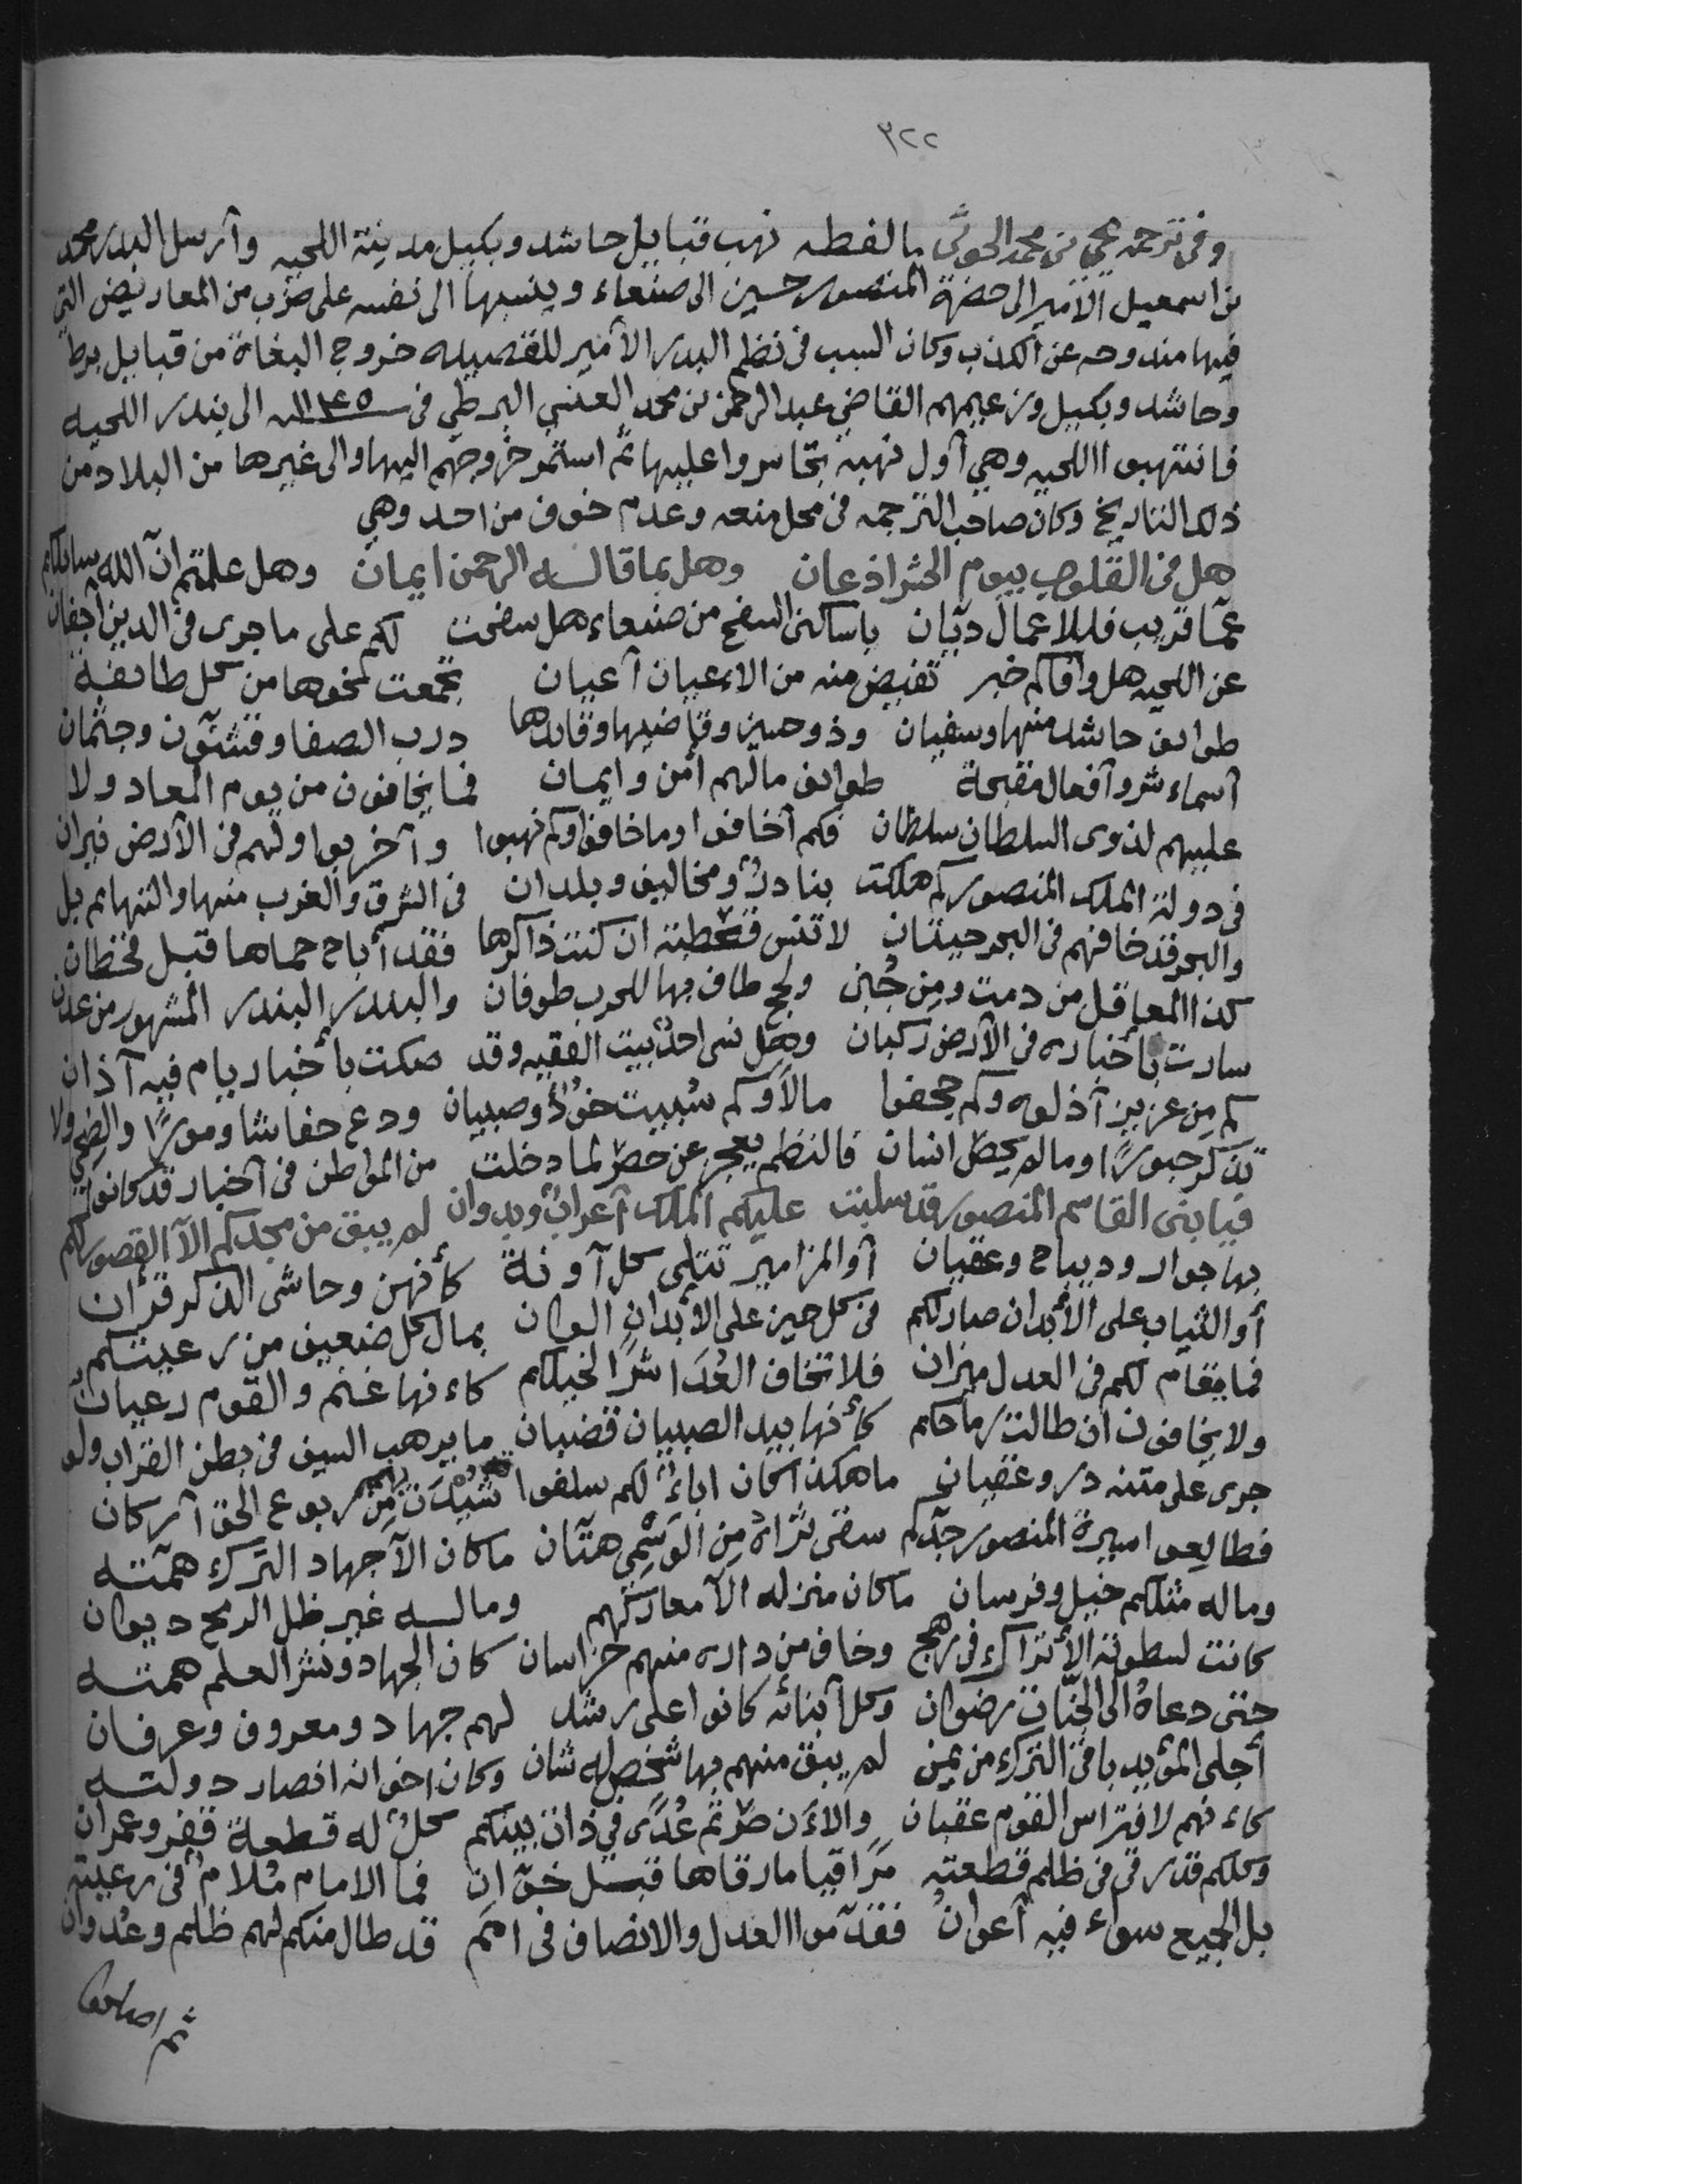 ٣٢٢
وفي ترجمة يحيى بن محمد الحوثي مالفظه نهب قبايل حاشد وبكيل مدينة اللحيه وآرسل البدر محمد
بن اسمعيل الآمير الى حضرة المنصور حسين الى صنعاء وينسبها الى نفسه على ضرب من المعاريض التي
فيها مندوحه عن الكذب وكان السبب في نظم البدر الآمير للقصيده خروج البغاة من قبايل برط
وحاشد وبكيل وزعيمهم القاضي عبد الرحمن بن محمد العنسي البرطي في ١١٤٥ـنه الى بندر اللحيه
فانتهبوا اللحيه وهي آول نهبة تجاسروا عليها ثم استمر خروجهم اليها والى غيرها من البلاد من
ذلك التاريخ وكان صاحب الترجمه في محل منعه وعدم خوف من احد وهي
هل في القلوب بيوم الحشر اذعان وهل بما قالـه الرحمن ايمان وهل علمتم انّ الله سائلكم
عمّا قريب فللاعمال ديّان ياساكنى السفح من صنعاء هل سفحت لكم على ما جرى في الدين آجفان
عن اللحيه هل وافاكم خبر تفيض منه من الاعيان آعيان تجمعت نحوها من كل طايفة
طوايف حاشد منها وسفيان وذو حسين وقاضيها وقائدها درب الصفا وقشنّون وجثمان
آسماء شر وآفعال مقبحة طوايف مالهم أمن وايمان فما يخافون من يوم المعاد ولا
عليهم لذوى السلطان سلطان فكم آخافوا وما خافوا وكم نهبوا وآخربوا ولهم في الآرض نيران
في دولة الملك المنصور كم هلكت بنادرٌ ومخاليف وبلدان في الشرق والغرب منها والتهايم بل
والبحر قد خافهم في البحر حيتان لا تنس قعطبة ان كنت ذاكرها فقد آباح حماها قبل قحطان
كذا المعاقل من دمت ومن جُبن ولحج طاف بها للحرب طوفان والبندر البندر المشهور من عدن
سارت بأخباره في الآرض ركبان وهل نسى احدٌ بيت الفقيه وقد صكت بأخبار يام فيه آذان
كم مِن عزيز آذلوه وكم جحفوا مالاً وكم سُبيت خودٌ وصبيان ودع حفاشا وموراً والضحي ولا
تذكر حبوراً وما لم يحصّ انسان فالنظم يعجز عن حصرٍ لما دخلت من المواطن في آخبار قد كانوا
فيا بني القاسم المنصور قد سلبت عليكم الملك آعرابٌ وبدوان لم يبق من مجدكم الآ القصور لكم
بها جوار وديباج وعقيان آو المزامير تتلى كل آونة كأنهن وحاشى الذكر قرآن
أو الثياب على الأبدان صار لكم في كل حين على الأبدان الوان بمال كل ضعيف من رعيتكم
فما يقام لكم في العدل ميزان فلا تخاف العُدَا شراً لخيلكم كاءنها غنم والقوم رعيان
ولا يخافون ان طالت رماحكم كأنها بيد الصبيان قضبان ما يرهب السيف في بطن القراب ولو
جرى على متنه در وعقيان ما هكذا كان اباءٌ لكم سلفوا شيدت بهم من ربوع الحق آركان
فطالعوا سيرة المنصور جدّكم سقى ثراه مِن الوَسْمِي هتّان ما كان الآ جهاد الترك همّتـه
وماله مثلكم خيل وفرسان ما كان منزله الآ معاركهم ومالـه غير ظل الرمح ديوان
كانت لسطوته الأتراك في رهج وخاف من داره منهم خراسان كان الجهاد ونشر العلم همتـه
حتى دعاهُ الى الجنّات رضوان وكل آبنائه كانوا على رشد لهم جهاد ومعروف وعرفان
أجلى المؤيد باقي الترك من يمن لم يبق منهم بها شخص له شان وكان اخوانه انصار دولتـه
كاءنهم لافتراس القوم عقبان والاءن صرتم عُدًى في ذات بينكم كلٌ له قطعة قفر وعمران
وكلكم قد رقى في ظلم قطعته مَراقيا ما رقاها قبـل خوّان فما الامام مُلامٌ في رعيته
بل الجميع سواء فيه آعوان فقدّموا العدل والانصاف في امم قد طال منكم لهم ظلم وعدوان
ثم اصلحوا